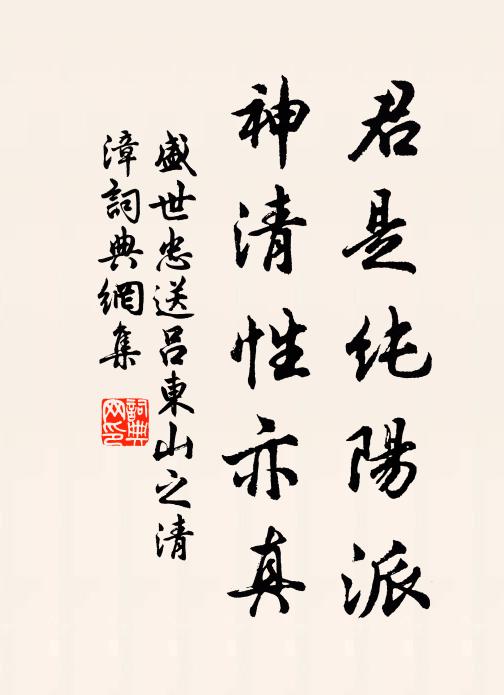 君是纯陽派
神清性亦真
盛世忠送吕東山之清
漳詞典網集
詞典
网印